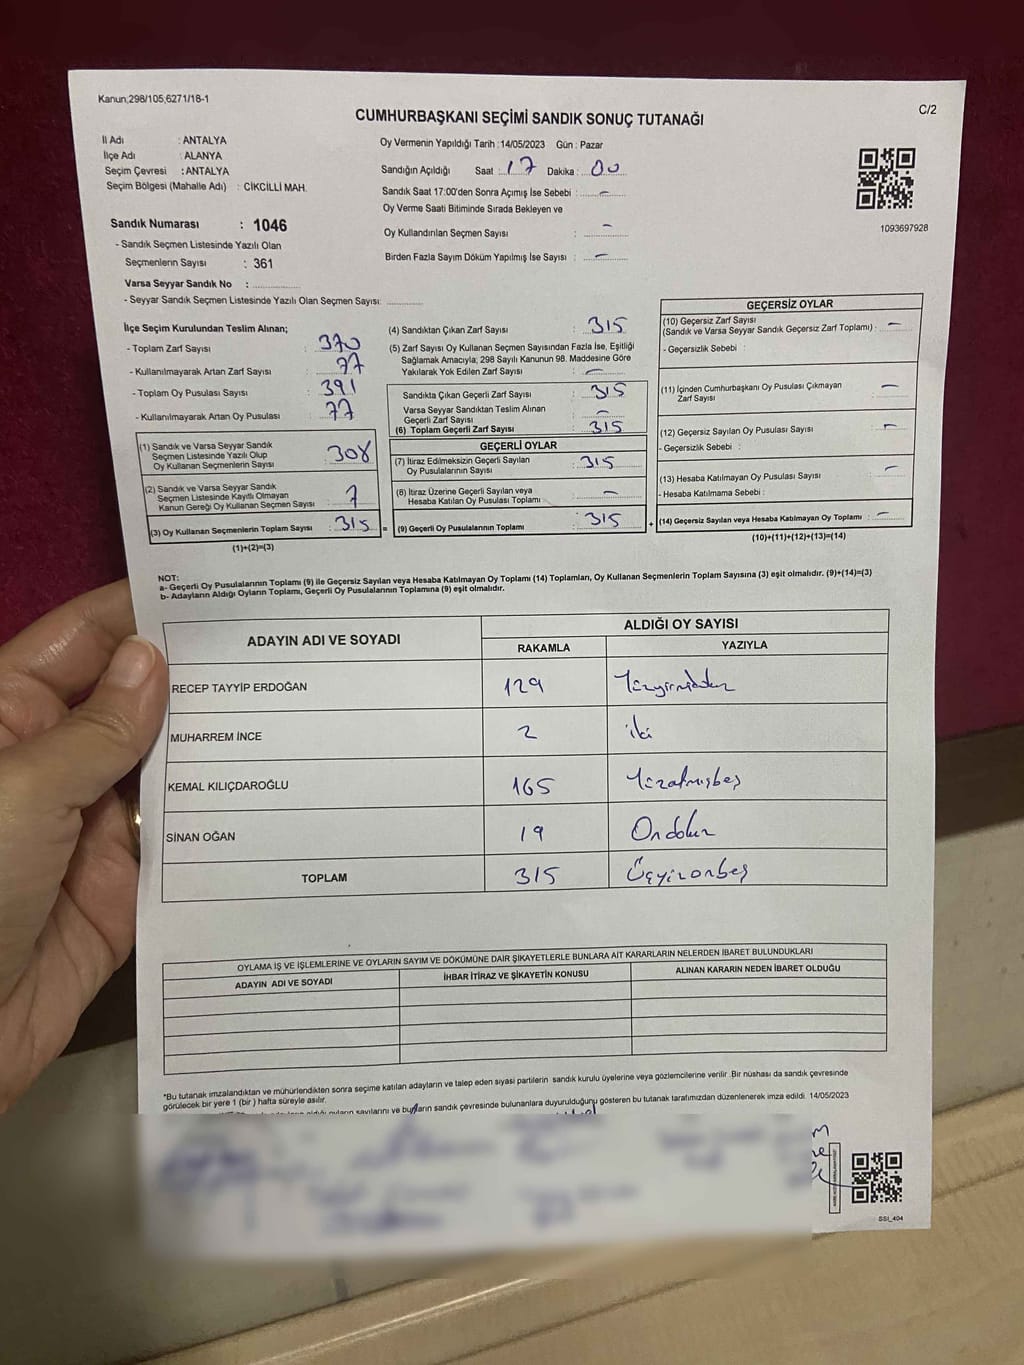 Kanun;298/105,6271/18-1
C/2
CUMHURBAŞKANI SEÇİMİ SANDIK SONUÇ TUTANAĞI
İl Adı : ANTALYA
İlçe Adı : ALANYA
Seçim Çevresi : ANTALYA
Seçim Bölgesi (Mahalle Adı) : CİKCİLLİ MAH.
Sandık Numarası : 1046
- Sandık Seçmen Listesinde Yazılı Olan
Seçmenlerin Sayısı : 361
Varsa Seyyar Sandık No :
- Seyyar Sandık Seçmen Listesinde Yazılı Olan Seçmen Sayısı:
Oy Vermenin Yapıldığı Tarih :14/05/2023 Gün : Pazar
Sandığın Açıldığı Saat : 17 Dakika : 00
Sandık Saat 17:00'den Sonra Açımış İse Sebebi : -
Oy Verme Saati Bitiminde Sırada Bekleyen ve
Oy Kullandırılan Seçmen Sayısı : -
Birden Fazla Sayım Döküm Yapılmış İse Sayısı : -
1093697928
İlçe Seçim Kurulundan Teslim Alınan;
- Toplam Zarf Sayısı : 370
- Kullanılmayarak Artan Zarf Sayısı : 77
- Toplam Oy Pusulası Sayısı : 391
- Kullanılmayarak Artan Oy Pusulası : 77
(1) Sandık ve Varsa Seyyar Sandık
Seçmen Listesinde Yazılı Olup
Oy Kullanan Seçmenlerin Sayısı : 308
(2) Sandık ve Varsa Seyyar Sandık
Seçmen Listesinde Kayıtlı Olmayan
Kanun Gereği Oy Kullanan Seçmen Sayısı : 7
(3) Oy Kullanan Seçmenlerin Toplam Sayısı : 315 =
(1)+(2)=(3)
(4) Sandıktan Çıkan Zarf Sayısı : 315
(5) Zarf Sayısı Oy Kullanan Seçmen Sayısından Fazla İse, Eşitliği
Sağlamak Amacıyla; 298 Sayılı Kanunun 98. Maddesine Göre
Yakılarak Yok Edilen Zarf Sayısı : -
Sandıkta Çıkan Geçerli Zarf Sayısı : 315
Varsa Seyyar Sandıktan Teslim Alınan
Geçerli Zarf Sayısı : -
(6) Toplam Geçerli Zarf Sayısı : 315
GEÇERLİ OYLAR
(7) İtiraz Edilmeksizin Geçerli Sayılan
Oy Pusulalarının Sayısı : 315
(8) İtiraz Üzerine Geçerli Sayılan veya
Hesaba Katılan Oy Pusulası Toplamı : -
(9) Geçerli Oy Pusulalarının Toplamı : 315 +
GEÇERSİZ OYLAR
(10) Geçersiz Zarf Sayısı
(Sandık ve Varsa Seyyar Sandık Geçersiz Zarf Toplamı) : -
- Geçersizlik Sebebi :
(11) İçinden Cumhurbaşkanı Oy Pusulası Çıkmayan
Zarf Sayısı : -
(12) Geçersiz Sayılan Oy Pusulası Sayısı : -
- Geçersizlik Sebebi :
(13) Hesaba Katılmayan Oy Pusulası Sayısı : -
- Hesaba Katılmama Sebebi :
(14) Geçersiz Sayılan veya Hesaba Katılmayan Oy Toplamı : -
(10)+(11)+(12)+(13)=(14)
NOT:
a- Geçerli Oy Pusulalarının Toplamı (9) ile Geçersiz Sayılan veya Hesaba Katılmayan Oy Toplamı (14) Toplamları, Oy Kullanan Seçmenlerin Toplam Sayısına (3) eşit olmalıdır. (9)+(14)=(3)
b- Adayların Aldığı Oyların Toplamı, Geçerli Oy Pusulalarının Toplamına (9) eşit olmalıdır.
ADAYIN ADI VE SOYADI ALDIĞI OY SAYISI
RAKAMLA YAZIYLA
RECEP TAYYİP ERDOĞAN 129 Yüzyirmidokuz
MUHARREM İNCE 2 iki
KEMAL KILIÇDAROĞLU 165 Yüzaltmışbeş
SİNAN OĞAN 19 Ondokuz
TOPLAM 315 Üçyüzonbeş
OYLAMA İŞ VE İŞLEMLERİNE VE OYLARIN SAYIM VE DÖKÜMÜNE DAİR ŞİKAYETLERLE BUNLARA AİT KARARLARIN NELERDEN İBARET BULUNDUKLARI
ADAYIN ADI VE SOYADI İHBAR İTİRAZ VE ŞİKAYETİN KONUSU ALINAN KARARIN NEDEN İBARET OLDUĞU
*Bu tutanak imzalandıktan ve mühürlendikten sonra seçime katılan adayların ve talep eden siyasi partilerin sandık kurulu üyelerine veya gözlemcilerine verilir .Bir nüshası da sandık çevresinde
görülecek bir yere 1 (bir ) hafta süreyle asılır.
oyların sayılarını ve bunların sandık çevresinde bulunanlara duyurulduğunu gösteren bu tutanak tarafımızdan düzenlenerek imza edildi. 14/05/2023
SSI_404